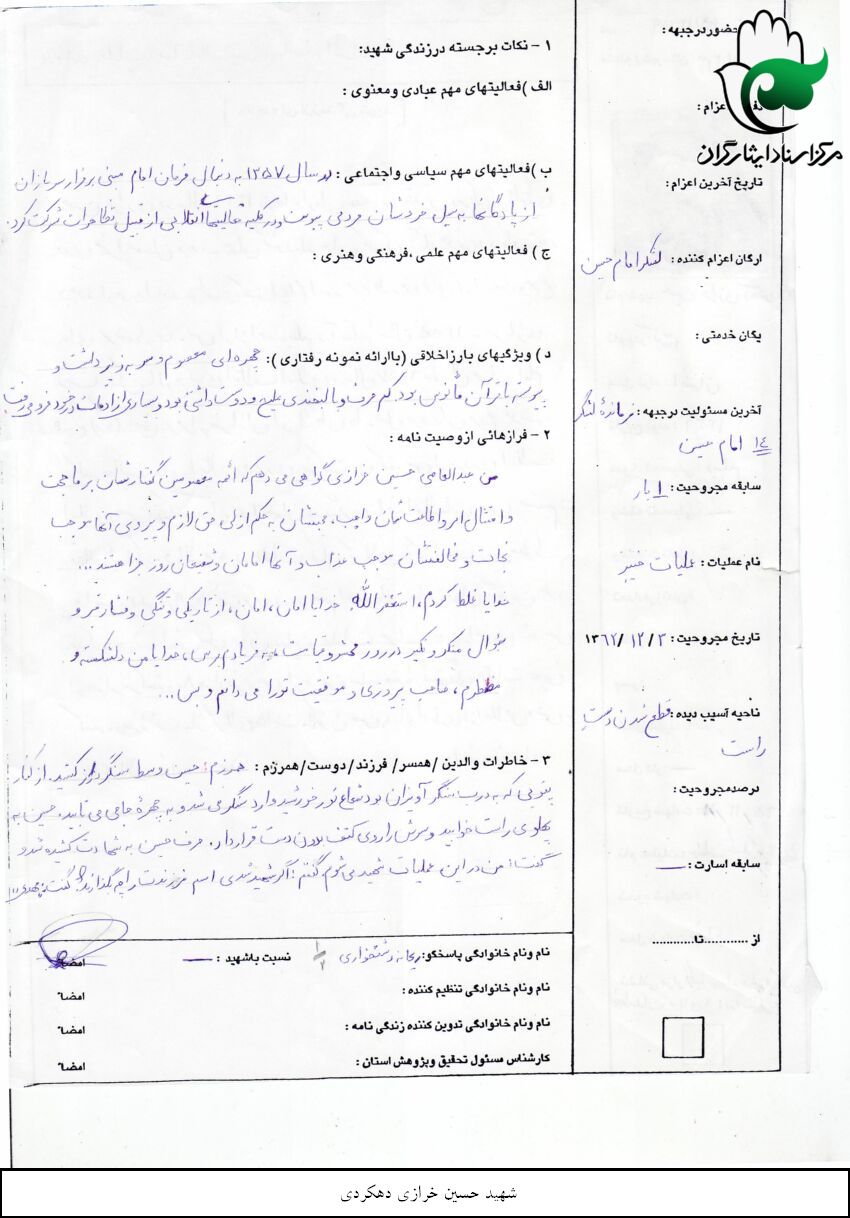 مرکز اسناد ایثارگران
حضور در جبهه :
اعزام :
تاریخ آخرین اعزام :
ارگان اعزام کننده : لشکر امام حسین
یگان خدمتی :
آخرین مسئولیت در جبهه : فرمانده لشکر
۱۴ امام حسین
سابقه مجروحیت : ۱ بار
نام عملیات : عملیات خیبر
تاریخ مجروحیت : ۱۳۶۲/۱۲/۳
ناحیه آسیب دیده : قطع شدن دست
راست
درصد مجروحیت :
سابقه اسارت : —
از ............ تا ............
۱ - نکات برجسته در زندگی شهید :
الف ) فعالیتهای مهم عبادی و معنوی :
ب ) فعالیتهای مهم سیاسی و اجتماعی : در سال ۱۳۵۷ به دنبال فرمان امام مبنی بر فرار سربازان
از پادگانها به سیل خروشان مردمی پیوست و در کلیه فعالیتهای انقلابی از قبیل تظاهرات شرکت کرد.
ج ) فعالیتهای مهم علمی ، فرهنگی و هنری :
د ) ویژگیهای بارز اخلاقی (با ارائه نمونه رفتاری ) : چهره ای معصوم و سر به زیر داشت و
پیوسته با قرآن مأنوس بود. کم حرف و با لبخندی ملیح و دوست داشتنی بود و بسیاری از اوقات در خود فرو می رفت
۲ - فرازهائی از وصیت نامه :
من عبدالعاصی حسین خرازی گواهی می دهم که ائمه معصومین گفتارشان بر ما حجت
و امتثال امر و اطاعتشان واجب، محبتشان به حکم ازلی حق لازم و پیروی آنها موجب
نجات و مخالفتشان موجب عذاب و آنها امامان و شفیعان روز جزا هستند ...
خدایا غلط کردم، استغفرالله، خدایا امان، امان، از تاریکی و تنگی و فشار قبر و
سؤال منکر و نکیر در روز محشر و قیامت، به فریادم برس، خدایا من دلشکسته و
مضطرم، صاحب پیروزی و موفقیت تو را می دانم و بس ...
۳ - خاطرات والدین /همسر/ فرزند/دوست/همرزم : همرزم: حسین وسط سنگر دراز کشید. از کنار
پتویی که به درب سنگر آویزان بود شعاع نور خورشید وارد سنگر می شد و به چهره حاجی می تابید. حسین به
پهلوی راست خوابید و سرش را روی کتف بدون دست قرار داد. حرف حسین به شهادت کشیده شد و
گفت: من در این عملیات شهید می شوم گفتم: اگر شهید شدی اسم فرزندت را چه بگذارند؟ گفت: مهدی ...
نام و نام خانوادگی پاسخگو: ریحانه دشتخواری نسبت با شهید : — امضاء
نام و نام خانوادگی تنظیم کننده : امضاء
نام و نام خانوادگی تدوین کننده زندگی نامه : امضاء
کارشناس مسئول تحقیق و پژوهش استان : امضاء
شهید حسین خرازی دهکردی